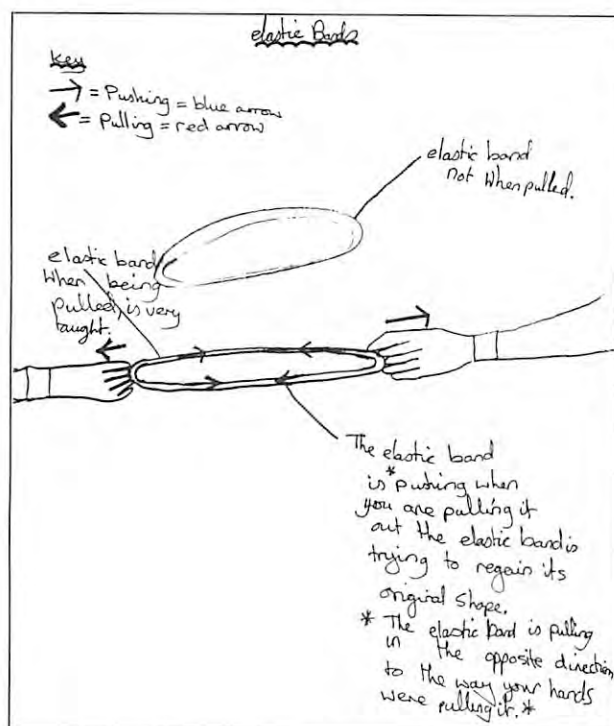 elastic Bands
Key
→ = Pushing = blue arrow
← = Pulling = red arrow
elastic band
not When pulled.
elastic band
When being
pulled, is very
taught.
The elastic band
is * pushing when
you are pulling it
out the elastic band is
trying to regain its
original shape.
* The elastic band is pulling
in the opposite direction
to the way your hands
were pulling it *